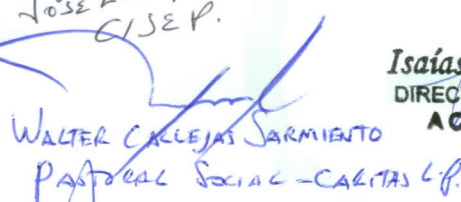 JOSE
CISEP.
Isaías
DIREC
WALTER CALLEJAS SARMIENTO
PASTORAL SOCIAL - CARITAS L.P.